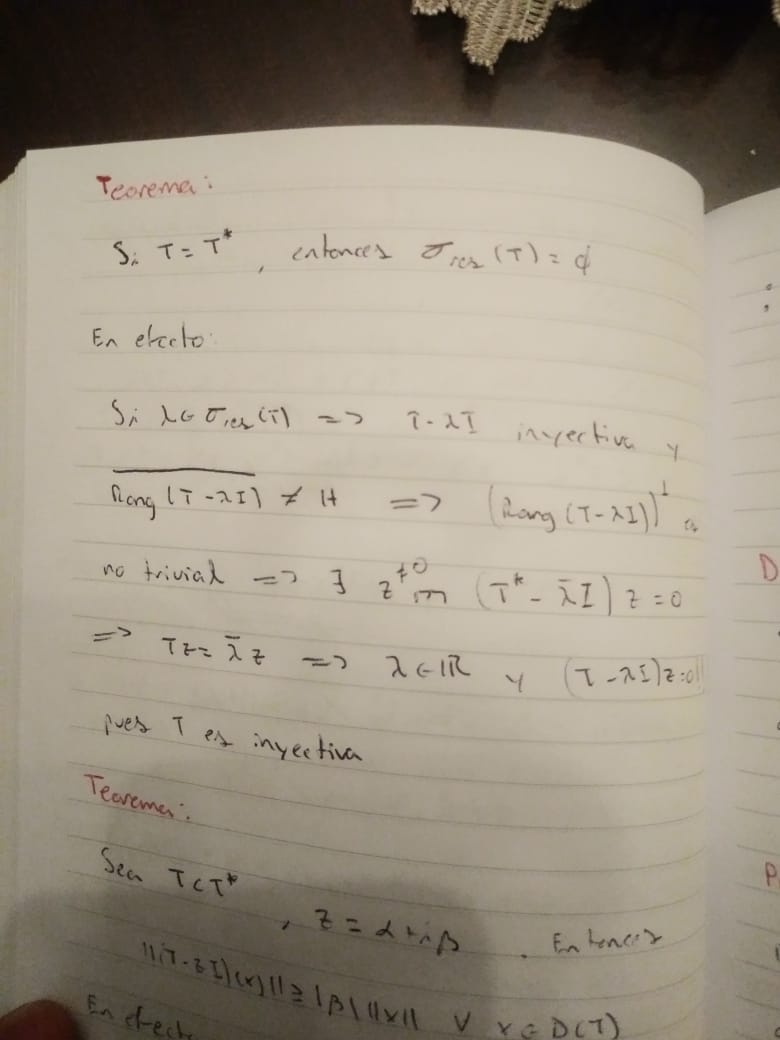 Teorema:
Si T = T*, entonces σres (T) = ϕ
En efecto:
Si λ ∈ σres (T) => T - λI inyectiva y
\overline{Rang (T - λI)} ≠ H => (Rang (T - λI))^⊥ es
no trivial => ∃ z ≠0 en (T* - \bar{λ}I) z = 0
=> Tz = \bar{λ}z => λ ∈ ℝ y (T - λI)z = 0!!
pues T es inyectiva
Teorema:
Sea T ⊂ T*, z = α + iβ. Entonces
||(T - zI)(x)|| ≥ |β| ||x|| ∀ x ∈ D(T)
En efect
D
P